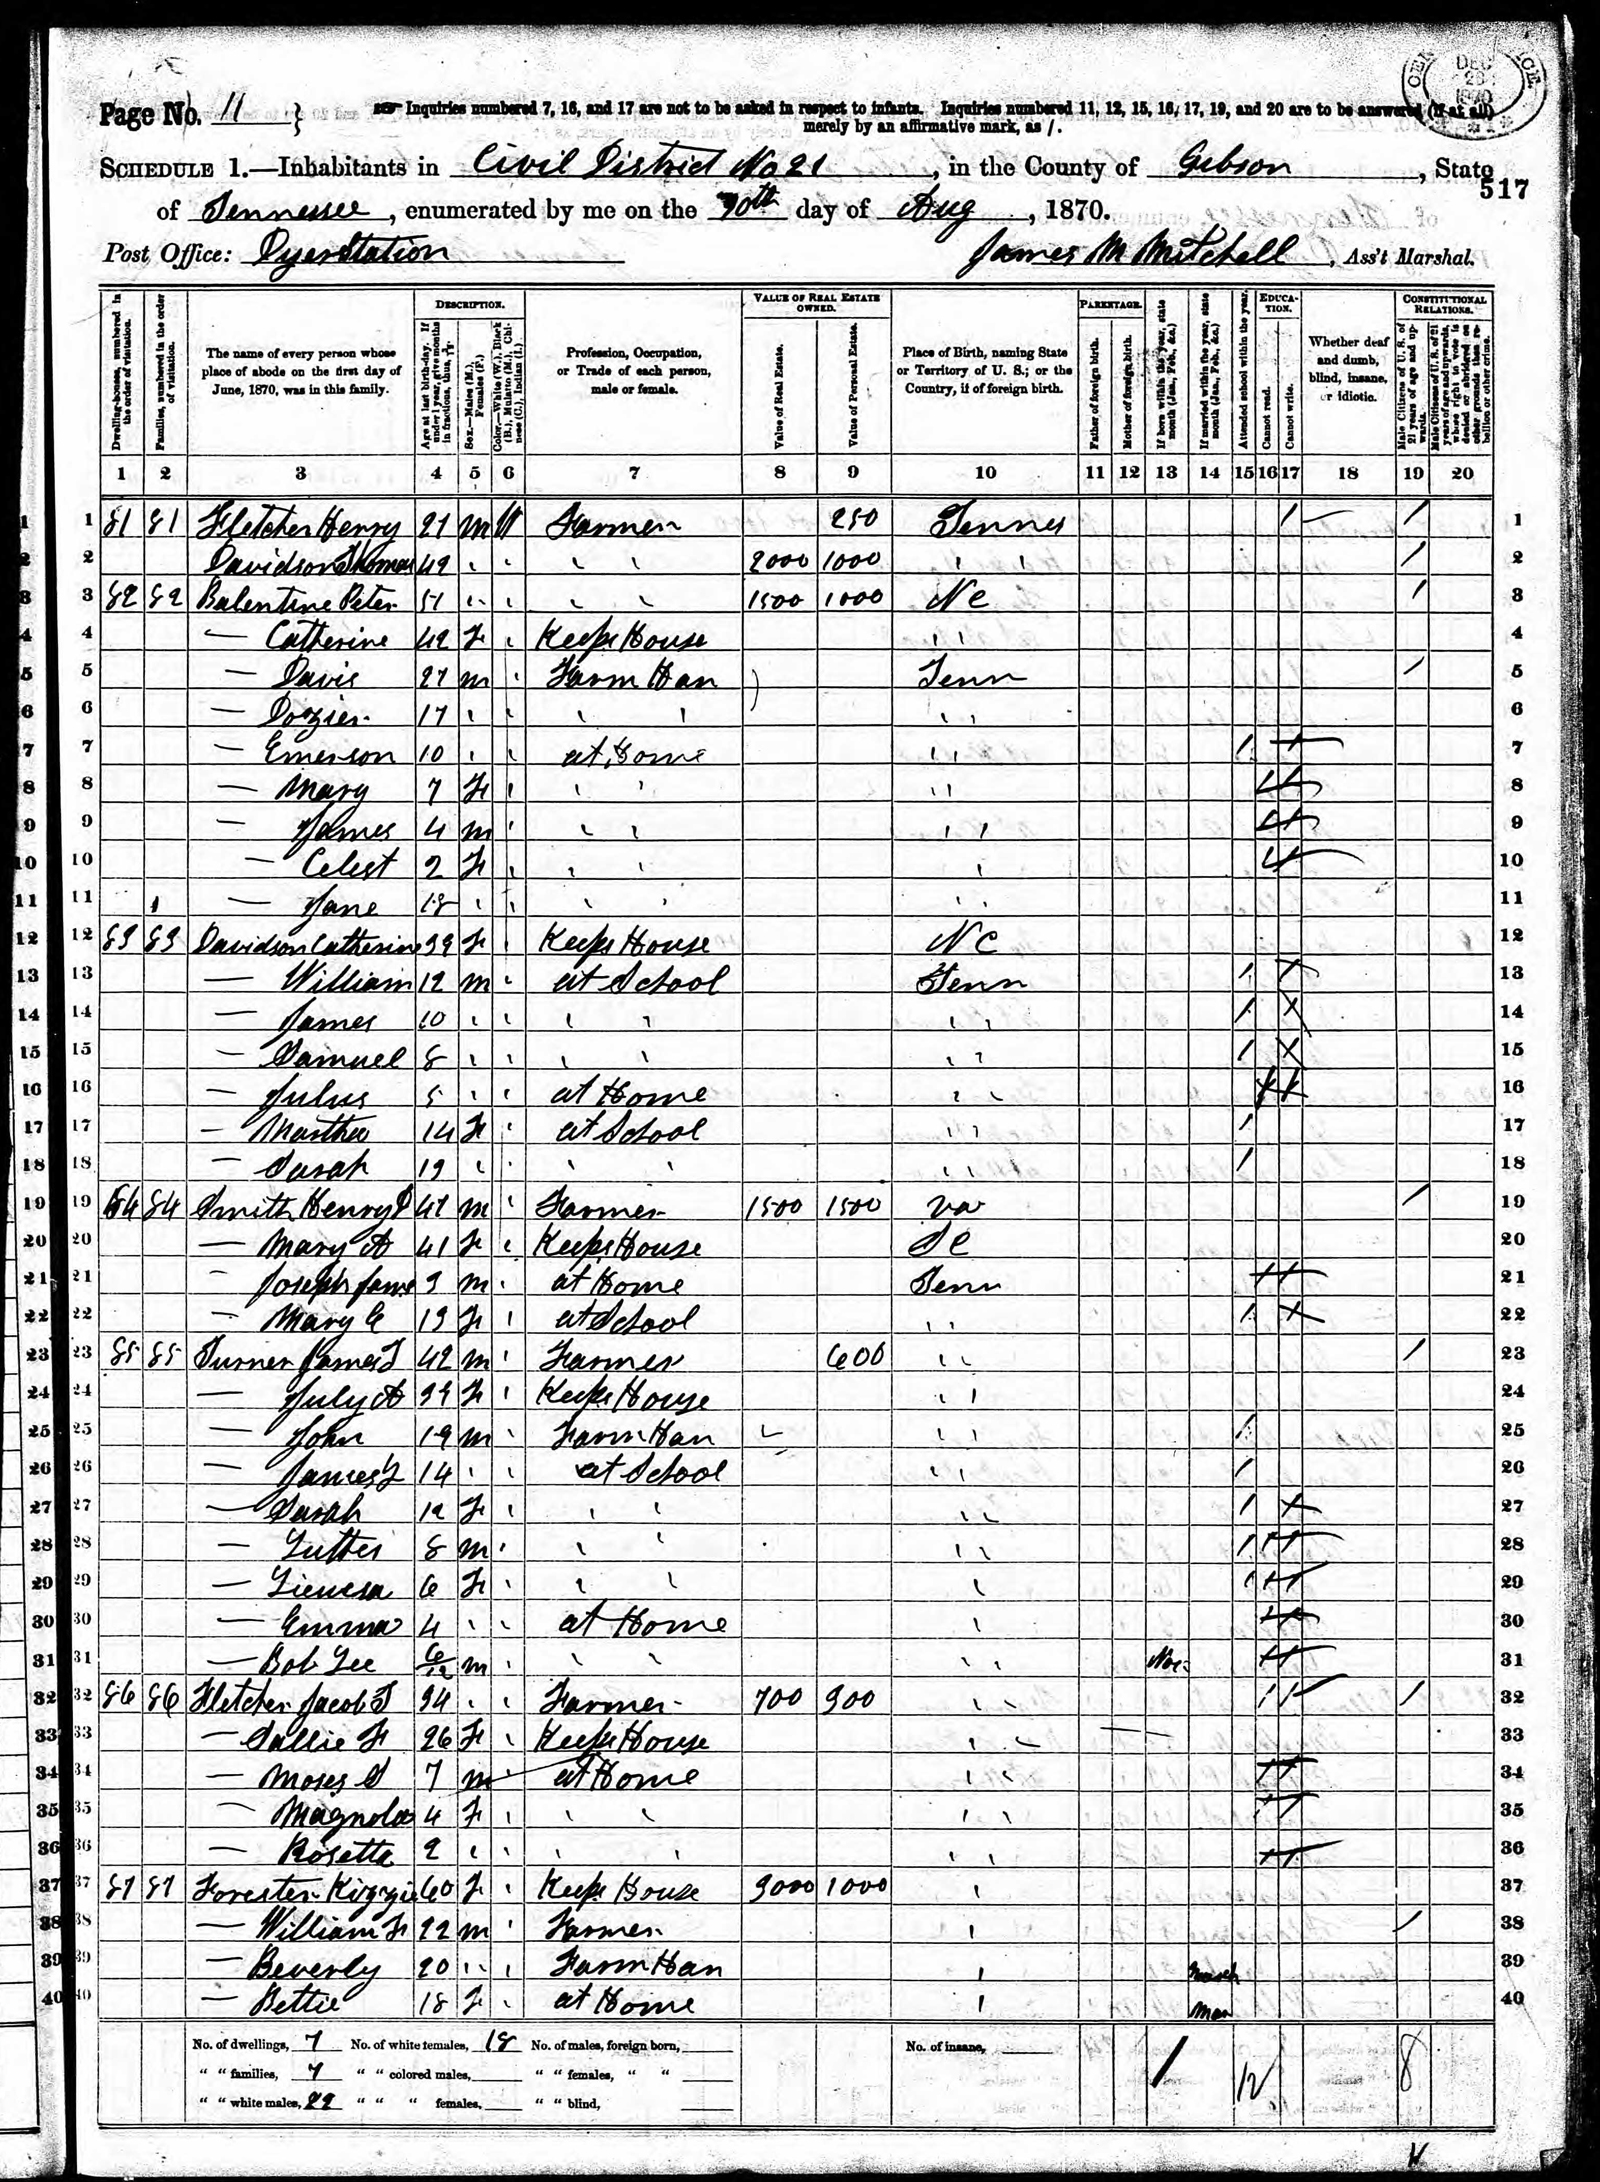 Page No. 11 } Inquiries numbered 7, 16, and 17 are not to be asked in respect to infants. Inquiries numbered 11, 12, 15, 16, 17, 19, and 20 are to be answered (if at all)
merely by an affirmative mark, as /.
DEC 28 1870
SCHEDULE 1.—Inhabitants in Civil District No 21, in the County of Gibson, State
517
of Tennessee, enumerated by me on the 30th day of Aug, 1870.
Post Office: Dyer Station James M Mitchell, Ass't Marshal.
DESCRIPTION. VALUE OF REAL ESTATE OWNED. PARENTAGE. EDUCATION. CONSTITUTIONAL RELATIONS.
Dwelling-houses, numbered in the order of visitation.
Families, numbered in the order of visitation.
The name of every person whose place of abode on the first day of June, 1870, was in this family.
Age at last birth-day. If under 1 year, give months in fractions, thus, 3/12
Sex.—Males (M.), Females (F.)
Color.—White (W.), Black (B.), Mulatto (M.), Chinese (C.), Indian (I.)
Profession, Occupation, or Trade of each person, male or female.
Value of Real Estate.
Value of Personal Estate.
Place of Birth, naming State or Territory of U. S.; or the Country, if of foreign birth.
Father of foreign birth.
Mother of foreign birth.
If born within the year, state month (Jan., Feb., &c.)
If married within the year, state month (Jan., Feb., &c.)
Attended school within the year.
Cannot read.
Cannot write.
Whether deaf and dumb, blind, insane, or idiotic.
Male Citizens of U. S. of 21 years of age and upwards.
Male Citizens of U. S. of 21 years of age and upwards, whose right to vote is denied or abridged on other grounds than rebellion or other crime.
1 2 3 4 5 6 7 8 9 10 11 12 13 14 15 16 17 18 19 20
1 81 81 Fletcher Henry 21 m W Farmer 250 Tennes / / 1
2 Davidson Thomas 49 " " " " 2000 1000 " " / 2
3 82 82 Balentine Peter 51 " " " " 1500 1000 N C / 3
4 — Catherine 42 F " Keeps House " " 4
5 — Davis 21 m " Farm Han Tenn / 5
6 — Dozier 17 " " " " " " 6
7 — Emerson 10 " " at Home " " / 7
8 — Mary 7 F " " " " " 8
9 — James 4 m " " " " " 9
10 — Celest 2 F " " " " 10
11 — Jane 18 " " " " " " 11
12 83 83 Davidson Catherine 39 F " Keeps House N C 12
13 — William 12 m " at School Tenn / 13
14 — James 10 " " " " " " / 14
15 — Samuel 8 " " " " " " / 15
16 — Julus 5 " " at Home " " 16
17 — Martha 14 F " at School " " / 17
18 — Sarah 13 " " " " " " / 18
19 84 84 Smith Henry D 47 m " Farmer 1500 1500 Va / 19
20 — Mary A 41 F " Keeps House S C 20
21 — Joseph James 3 m " at Home Tenn 21
22 — Mary E 13 F " at School " " / 22
23 85 85 Turner James T 42 m " Farmer 600 " " / 23
24 — July A 39 F " Keeps House " " 24
25 — John 19 m " Farm Han " " / 25
26 — James L 14 " " at School " " / 26
27 — Sarah 12 F " " " " " / 27
28 — 8 m " " " " " / 28
29 — 6 F " " " " / 29
30 — Emma 4 " " at Home " 30
31 — Bob Lee 6/12 m " " " " " 31
32 86 86 Fletcher Jacob T 34 " " Farmer 700 300 " " / 32
33 — Sallie F 26 F " Keeps House " " 33
34 — Moses 7 m at Home " " 34
35 — Magnola 4 F " " " " " 35
36 — Rosetta 2 " " " " " " 36
37 87 87 Forester Kizzie 60 F " Keeps House 3000 1000 " 37
38 — William F 22 m " Farmer " / 38
39 — Beverly 20 " " Farm Han " March 39
40 — Bettie 18 F " at Home " Mar 40
No. of dwellings, 7 No. of white females, 18 No. of males, foreign born, No. of insane,
" " families, 7 " " colored males, " " females, " " 1 12 8
" " white males, 22 " " " females, " " blind,